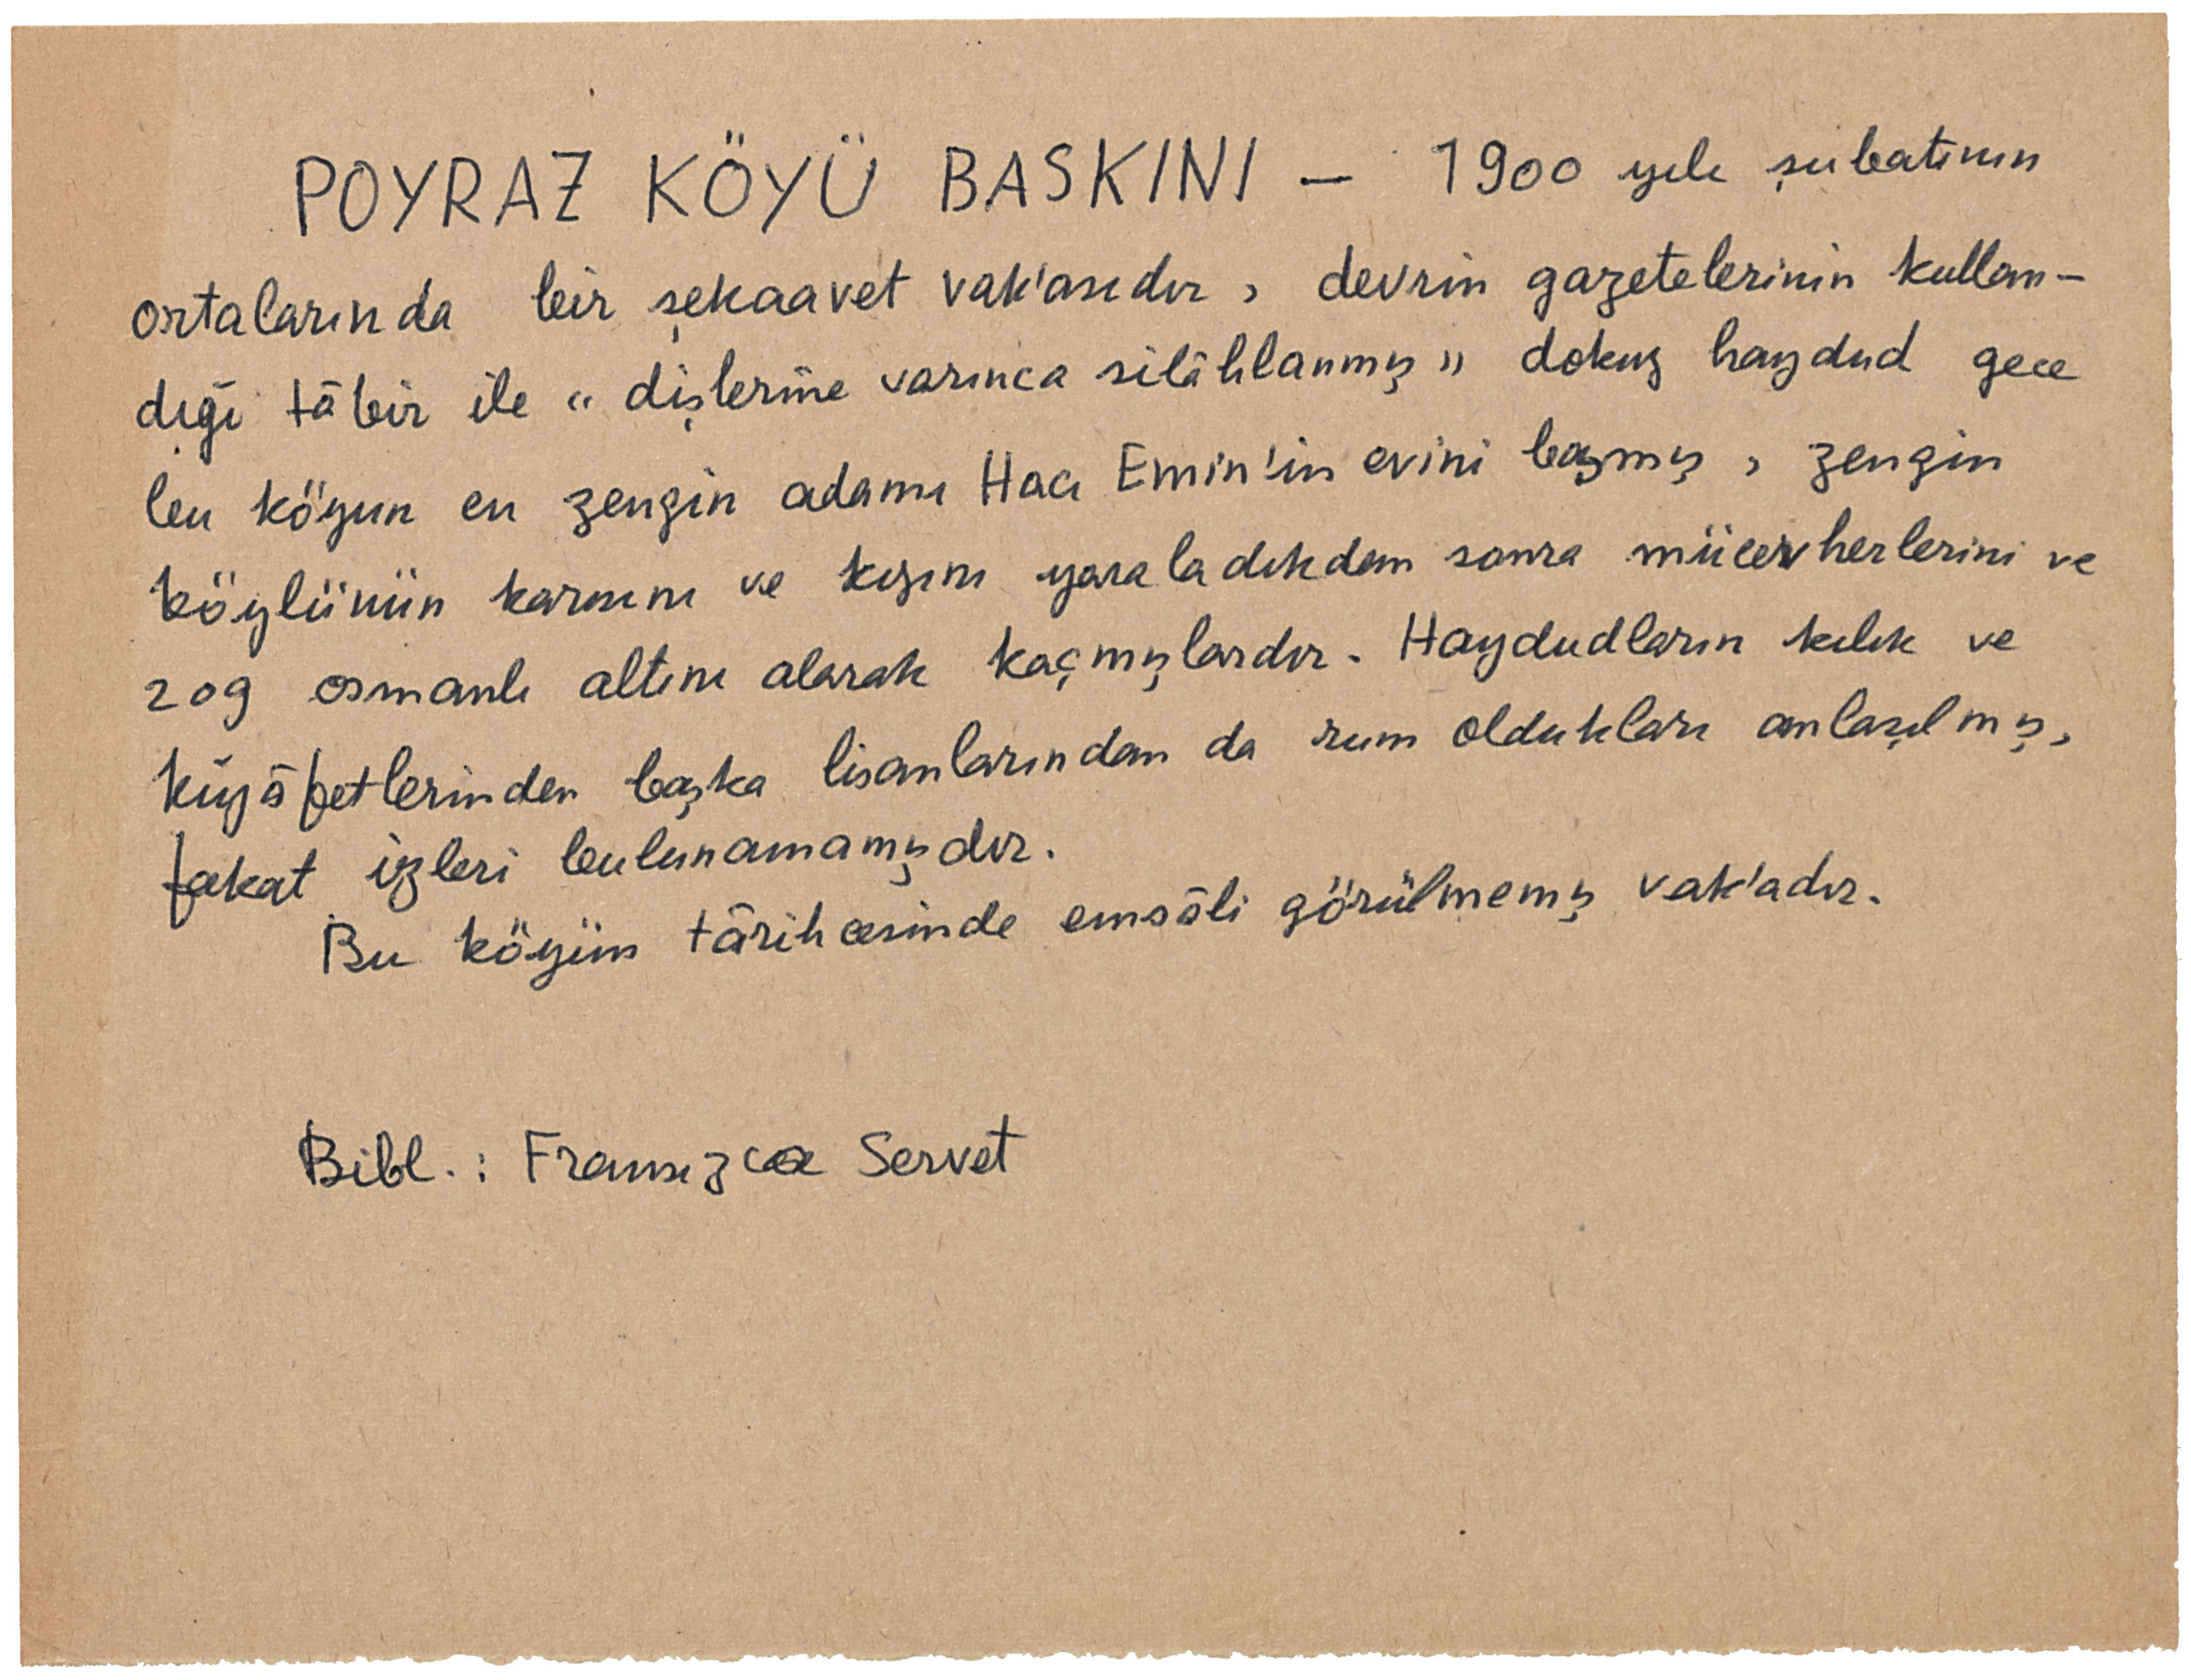 POYRAZ KÖYÜ BASKINI — 1900 yılı şubatının
ortalarında bir şekaavet vak'asıdır, devrin gazetelerinin kullan-
dığı tâbir ile "dişlerine varınca silâhlanmış" dokuz haydud gece
bu köyun en zengin adamı Hacı Emin'in evini basmış, zengin
köylünün karısını ve kızını yaraladıkdan sonra mücevherlerini ve
209 osmanlı altını alarak kaçmışlardır. Haydudların kılık ve
kıyâfetlerinden başka lisanlarından da rum oldukları anlaşılmış,
fakat izleri bulunamamışdır.
Bu köyün târihcesinde emsâli görülmemiş vak'adır.
Bibl.: Fransızca Servet